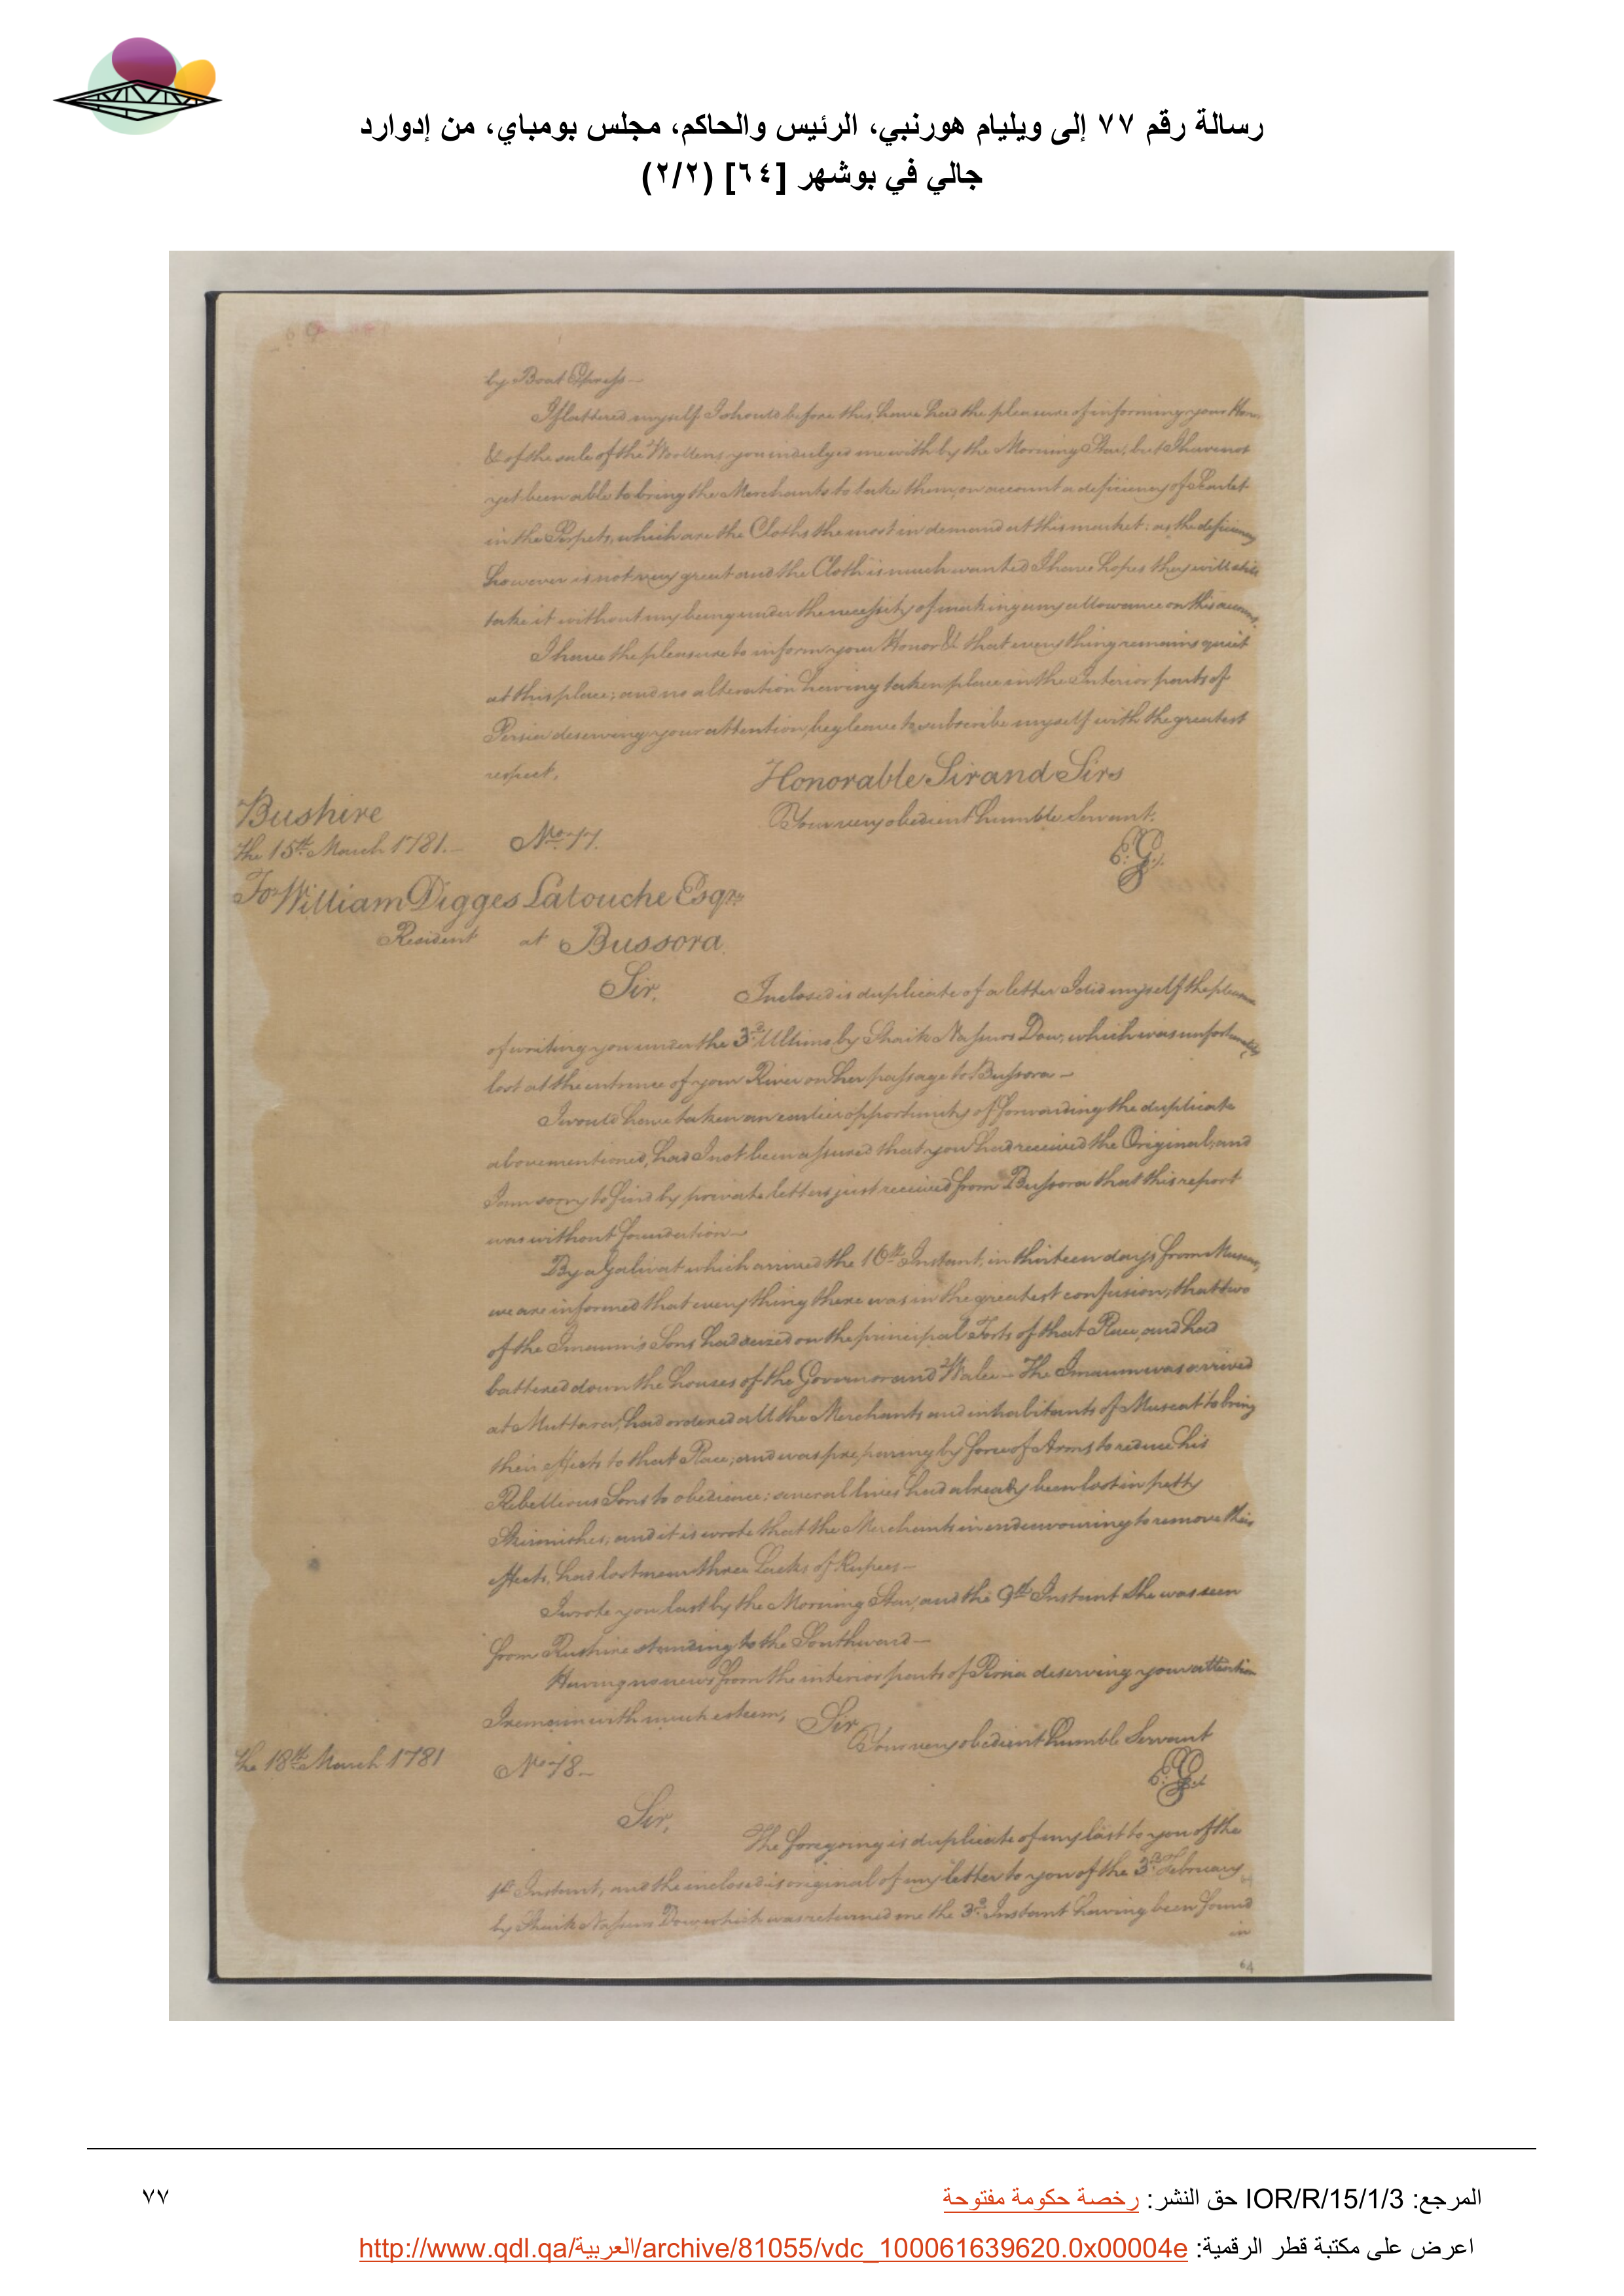 رسالة رقم ٧٧ إلى ويليام هورنبي، الرئيس والحاكم، مجلس بومباي، من إدوارد
جالي في بوشهر [٦٤] (٢/٢)
by Boat Express
I flattered myself I should before this, have had the pleasure of informing your Honor
&c of the sale of the Woollens you indulged me with by the Morning Star, but I have not
yet been able to bring the Merchants to take them on account a deficiency of Scarlet
in the Perpets, which are the Cloths the most in demand at this market: as the deficiency
however is not very great and the Cloth is much wanted I have hopes they will still
take it without my being under the necessity of making any allowance on this account.
I have the pleasure to inform your Honor &c that every thing remains quiet
at this place; and no alteration having taken place in the Interior parts of
Persia deserving your attention, beg leave to subscribe myself with the greatest
respect,
Honorable Sir and Sirs
Your very obedient humble Servant.
Bushire
the 15th March 1781.
No. 77.
E:G:
To William Digges Latouche Esqr.
Resident at Bussora
Sir,
Inclosed is duplicate of a letter I did myself the pleasure
of writing you under the 3d Ultimo by Shaik Nassurs Dow, which was unfortunately
lost at the entrence of your River on her passage to Bussora —
I would have taken an earlier opportunity of forwarding the duplicate
abovementioned, had I not been assured that you had received the Original, and
I am sorry to find by private letters just received from Bussora that this report
was without foundation —
By a Galivat which arrived the 16th Instant, in thirteen days from Muscat,
we are informed that every thing there was in the greatest confusion, that two
of the Imaum's Sons had seized on the principal Forts of that Place, and had
battered down the houses of the Governor and Walee — The Imaum was arrived
at Muttara, had ordered all the Merchants and inhabitants of Muscat to bring
their effects to that Place; and was preparing by force of Arms to reduce his
Rebellious Sons to obedience: several lives had already been lost in petty
Skirmishes, and it is wrote that the Merchants in endeavouring to remove their
effects, had lost near three Lacks of Rupees —
I wrote you last by the Morning Star, and the 9th Instant She was seen
from Bushire standing to the Southward —
Having no news from the interior parts of Persia deserving your attention
I remain with much esteem,
Sir
Your very obedient humble Servant
the 18th March 1781
No. 78.
E:G:
Sir,
The foregoing is duplicate of my last to you of the
Instant, and the inclosed is original of my letter to you of the 3d of February
by Shaik Nassurs Dow, which was returned me the 3d Instant having been found
in
64
المرجع: IOR/R/15/1/3 حق النشر: رخصة حكومة مفتوحة
٧٧
اعرض على مكتبة قطر الرقمية: http://www.qdl.qa/العربية/archive/81055/vdc_100061639620.0x00004e